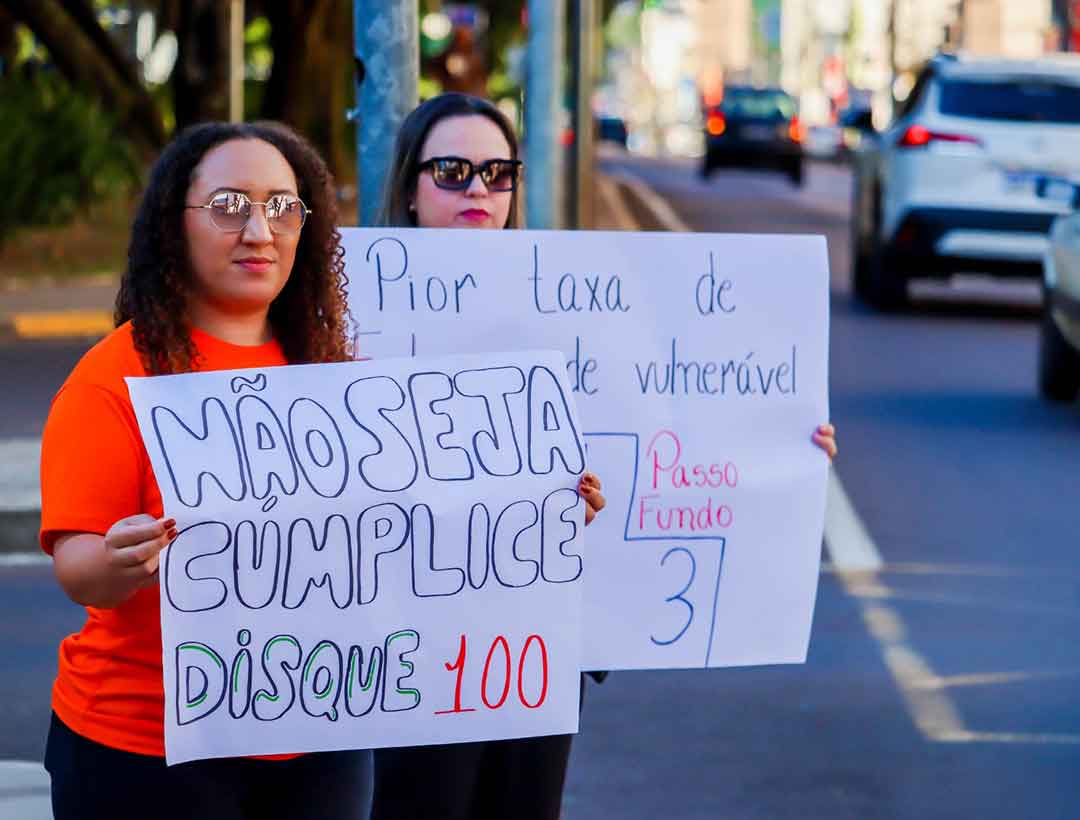 NÃO SEJA
CÚMPLICE
DISQUE 100
Pior taxa de
de vulnerável
Passo
Fundo
3